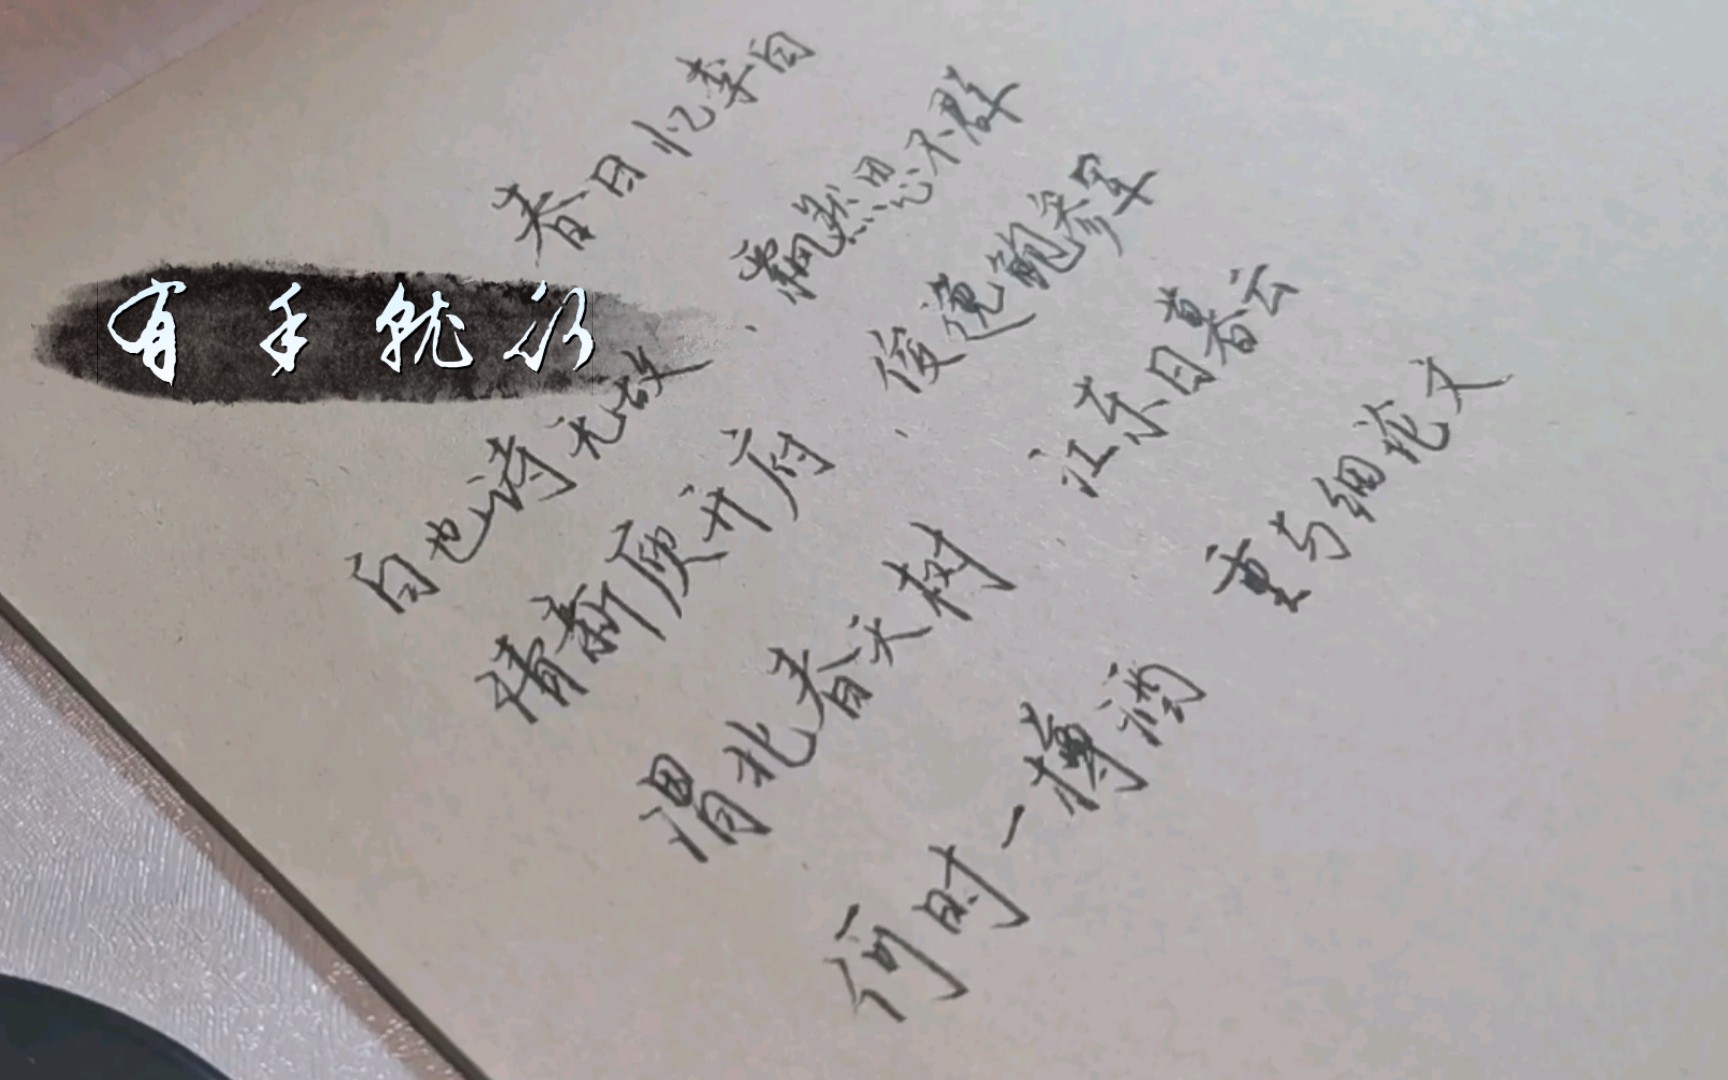 春日忆李白
有手就行
白也诗无敌，飘然思不群
清新庾开府，俊逸鲍参军
渭北春天树，江东日暮云
何时一樽酒 重与细论文